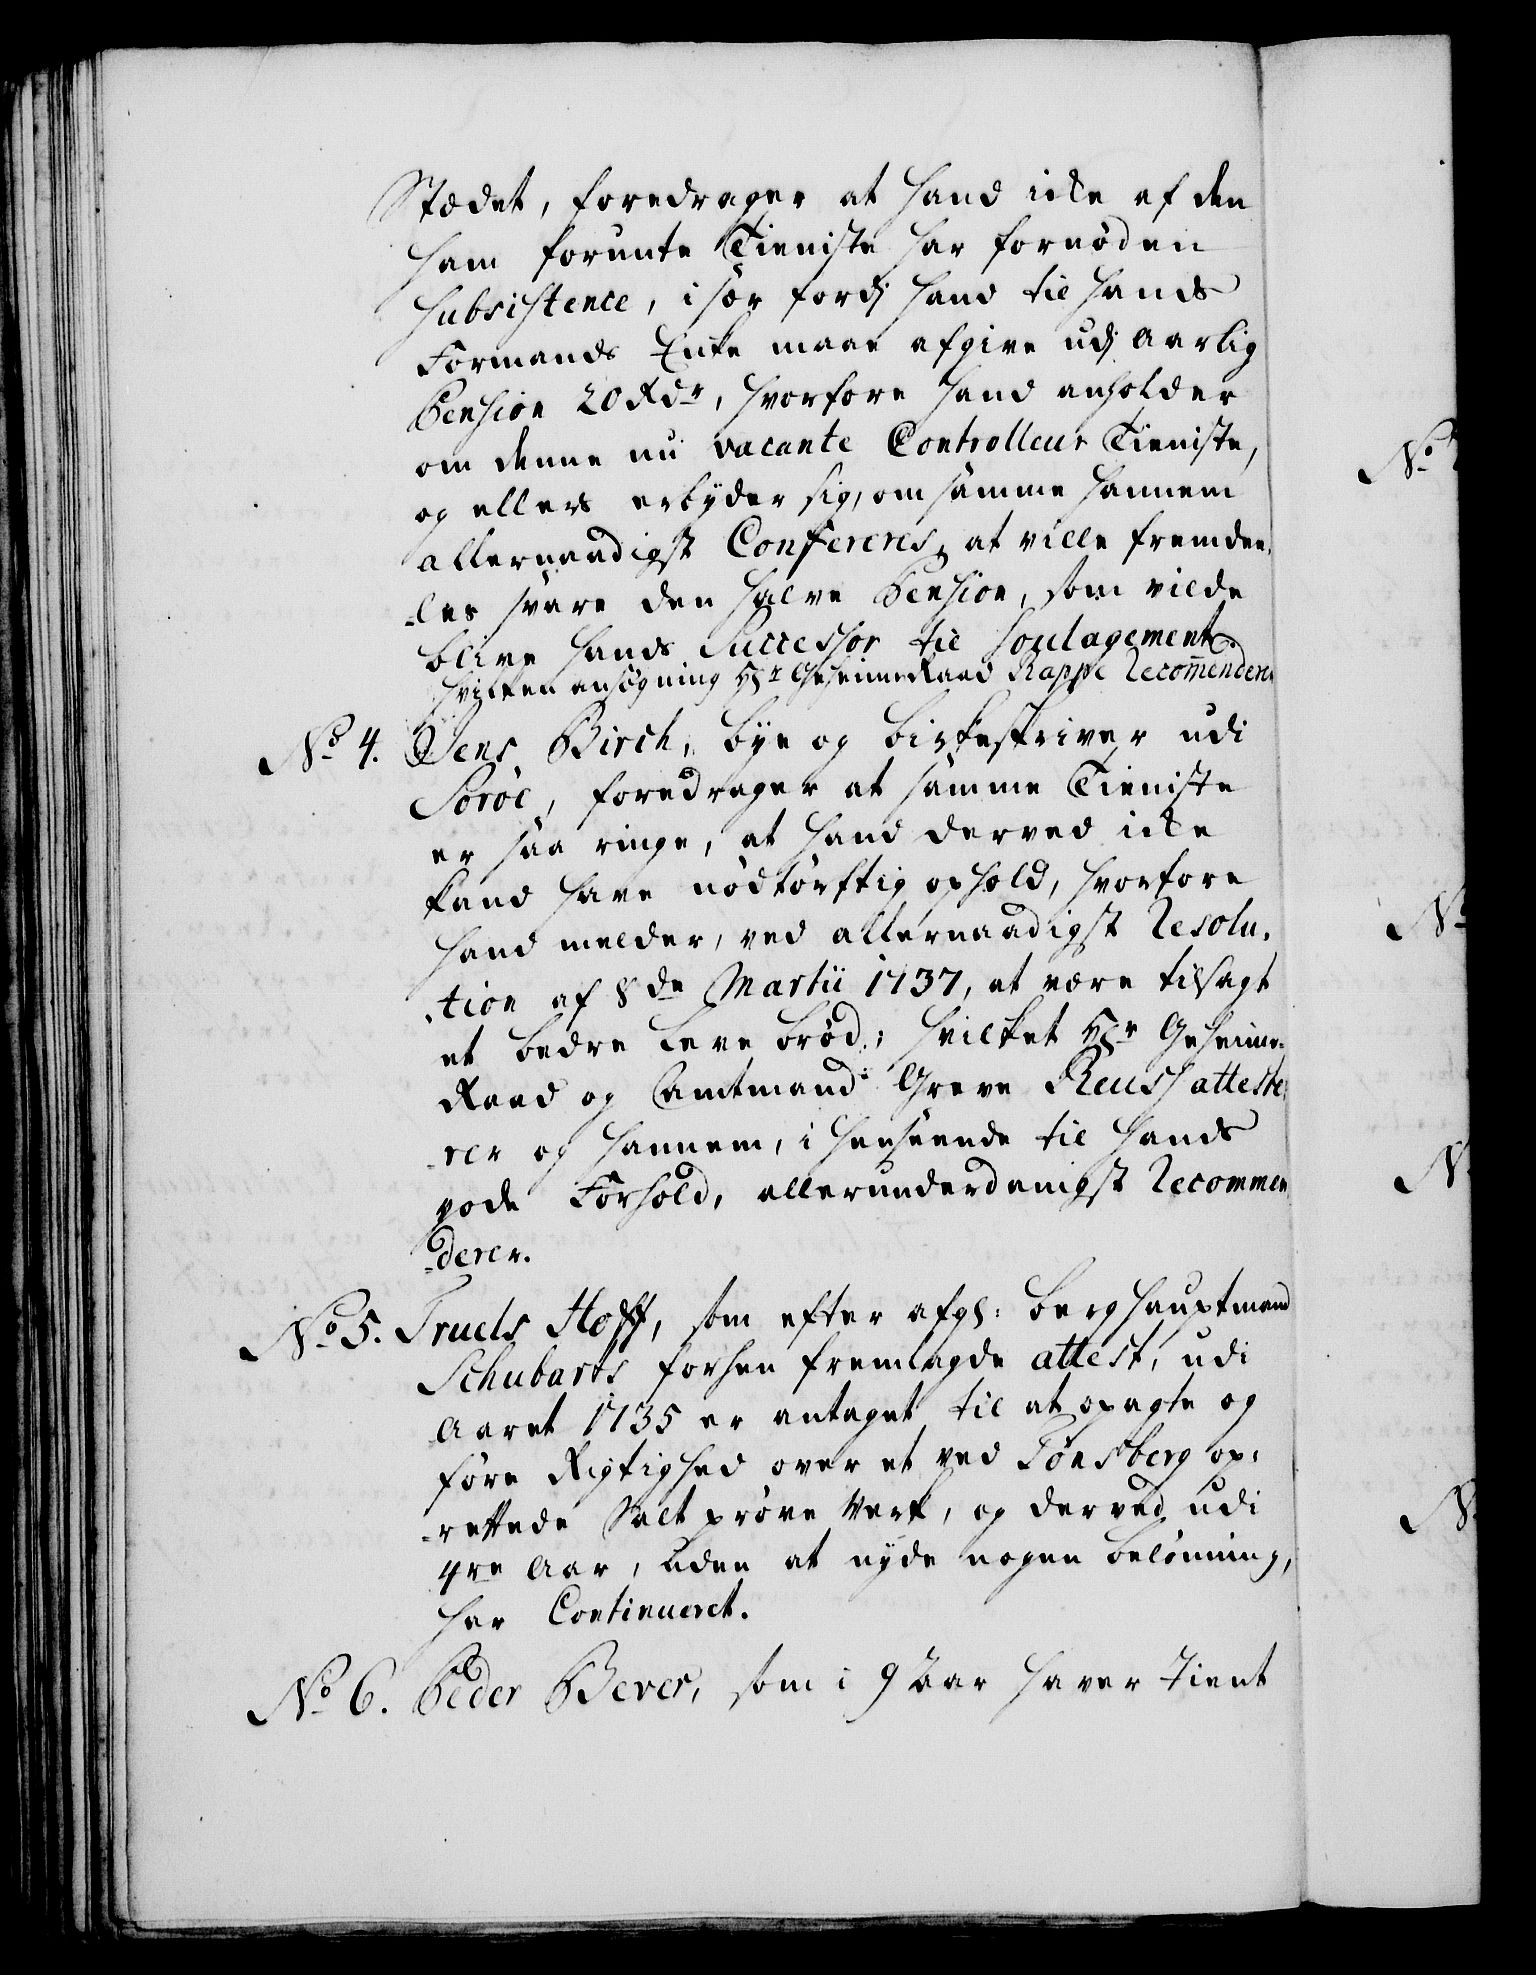 Stædet, foredrager at hand icke af den
ham forunte Tieniste har fornøden
Subsistence, i sær fordj hand til hands
Formands Encke maae afgive udj Aarlig
Pension 20 Rdr, hvorfore hand anholder
om denne nu vacante Controlleur Tieniste,
og ellers erbyder sig, om samme hannem
allernaadigst Confereres, at ville fremdee-
-les svare den halve Pension, som vilde
blive hands Successor til Soulagement
hvilken ansøgning Hr GeheimeRaad Rappe Recom̄enderer
No 4. Jens Birch, bye og birkeskriver udi
Soröe, foredrager at samme Tieniste
er saa ringe, at hand derved icke
kand have nødtørftig ophold, hvorfore
hand melder, ved allernaadigst Resolu-
-tion af 8de Martii 1737, at være tilsagt
et bedre leve brød; hvilket Hr Geheime-
Raad og Amtmand Greve Reuss atteste-
-rer og hannem, i henseende til hands
gode Forhold, allerunderdanigst Recommen
-derer.
No 5. Truels Hoff, som efter afg: berghauptmand
Schubarts forhen fremlagde attest, udi
Aaret 1735 er antaget til at opagte og
føre Rigtighed over et ved Tønsberg op-
-rettede Salt prøve Verk, og derved udi
4re Aar, uden at nyde nogen belønning,
har Continueret.
No 6. Peder Bever, som i 9 Aar haver tient
No
No
N
N